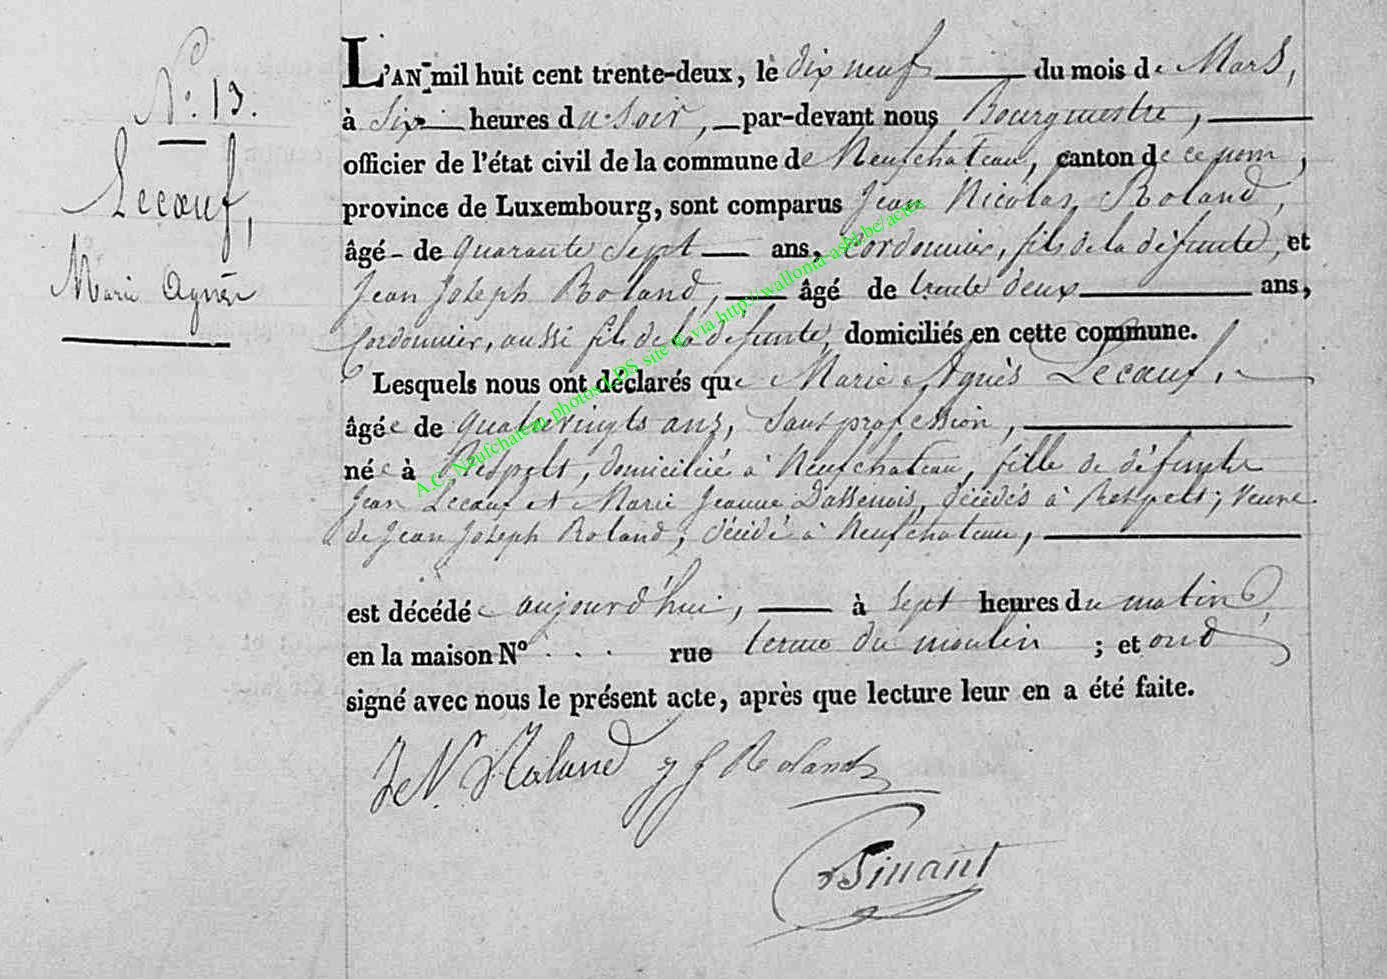 N°: 13.
Lecœuf,
Marie Agnès
L'AN mil huit cent trente-deux, le dix neuf du mois de Mars,
à Six heures du soir, par-devant nous Bourgmestre,
officier de l'état civil de la commune de Neufchateau, canton de ce nom,
province de Luxembourg, sont comparus Jean Nicolas Roland,
âgé de quarante Sept ans, Cordonnier, fils de la défunte, et
Jean Joseph Roland, âgé de trente deux ans,
Cordonnier, aussi fils de la défunte, domiciliés en cette commune.
Lesquels nous ont déclarés que Marie Agnès Lecœuf,
âgée de quatrevingts ans, Sans profession,
née à Respelt, domiciliée à Neufchateau, fille de défunts
Jean Lecœuf et Marie Jeanne Dassenois, décédés à Respelt; Veuve
de Jean Joseph Roland, décédé à Neufchateau,
est décédée aujourd'hui, à Sept heures du matin,
en la maison N° . . . rue terme du moulin ; et ont
signé avec nous le présent acte, après que lecture leur en a été faite.
J N Roland J J Roland
Sinant
A.C. Neufchateau photos LDS site via http://wallonia-asbl.be/actes